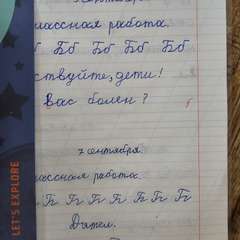 лассная работа.
Бб Бб Бб Бб
ствуйте, дети!
Вас болен?
7 сентября.
лассная работа.
Гг Гг Гг Гг Гг Гг
Дятел.
LET'S EXPLORE